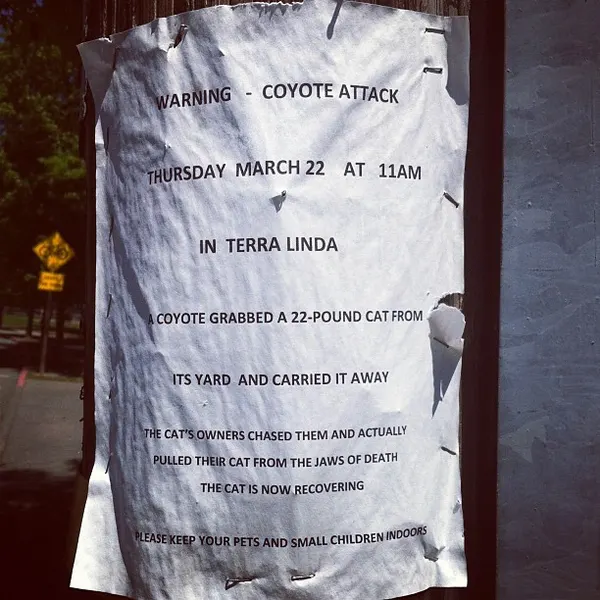 WARNING - COYOTE ATTACK
THURSDAY MARCH 22 AT 11AM
IN TERRA LINDA
A COYOTE GRABBED A 22-POUND CAT FROM
ITS YARD AND CARRIED IT AWAY
THE CAT'S OWNERS CHASED THEM AND ACTUALLY
PULLED THEIR CAT FROM THE JAWS OF DEATH
THE CAT IS NOW RECOVERING
PLEASE KEEP YOUR PETS AND SMALL CHILDREN INDOORS